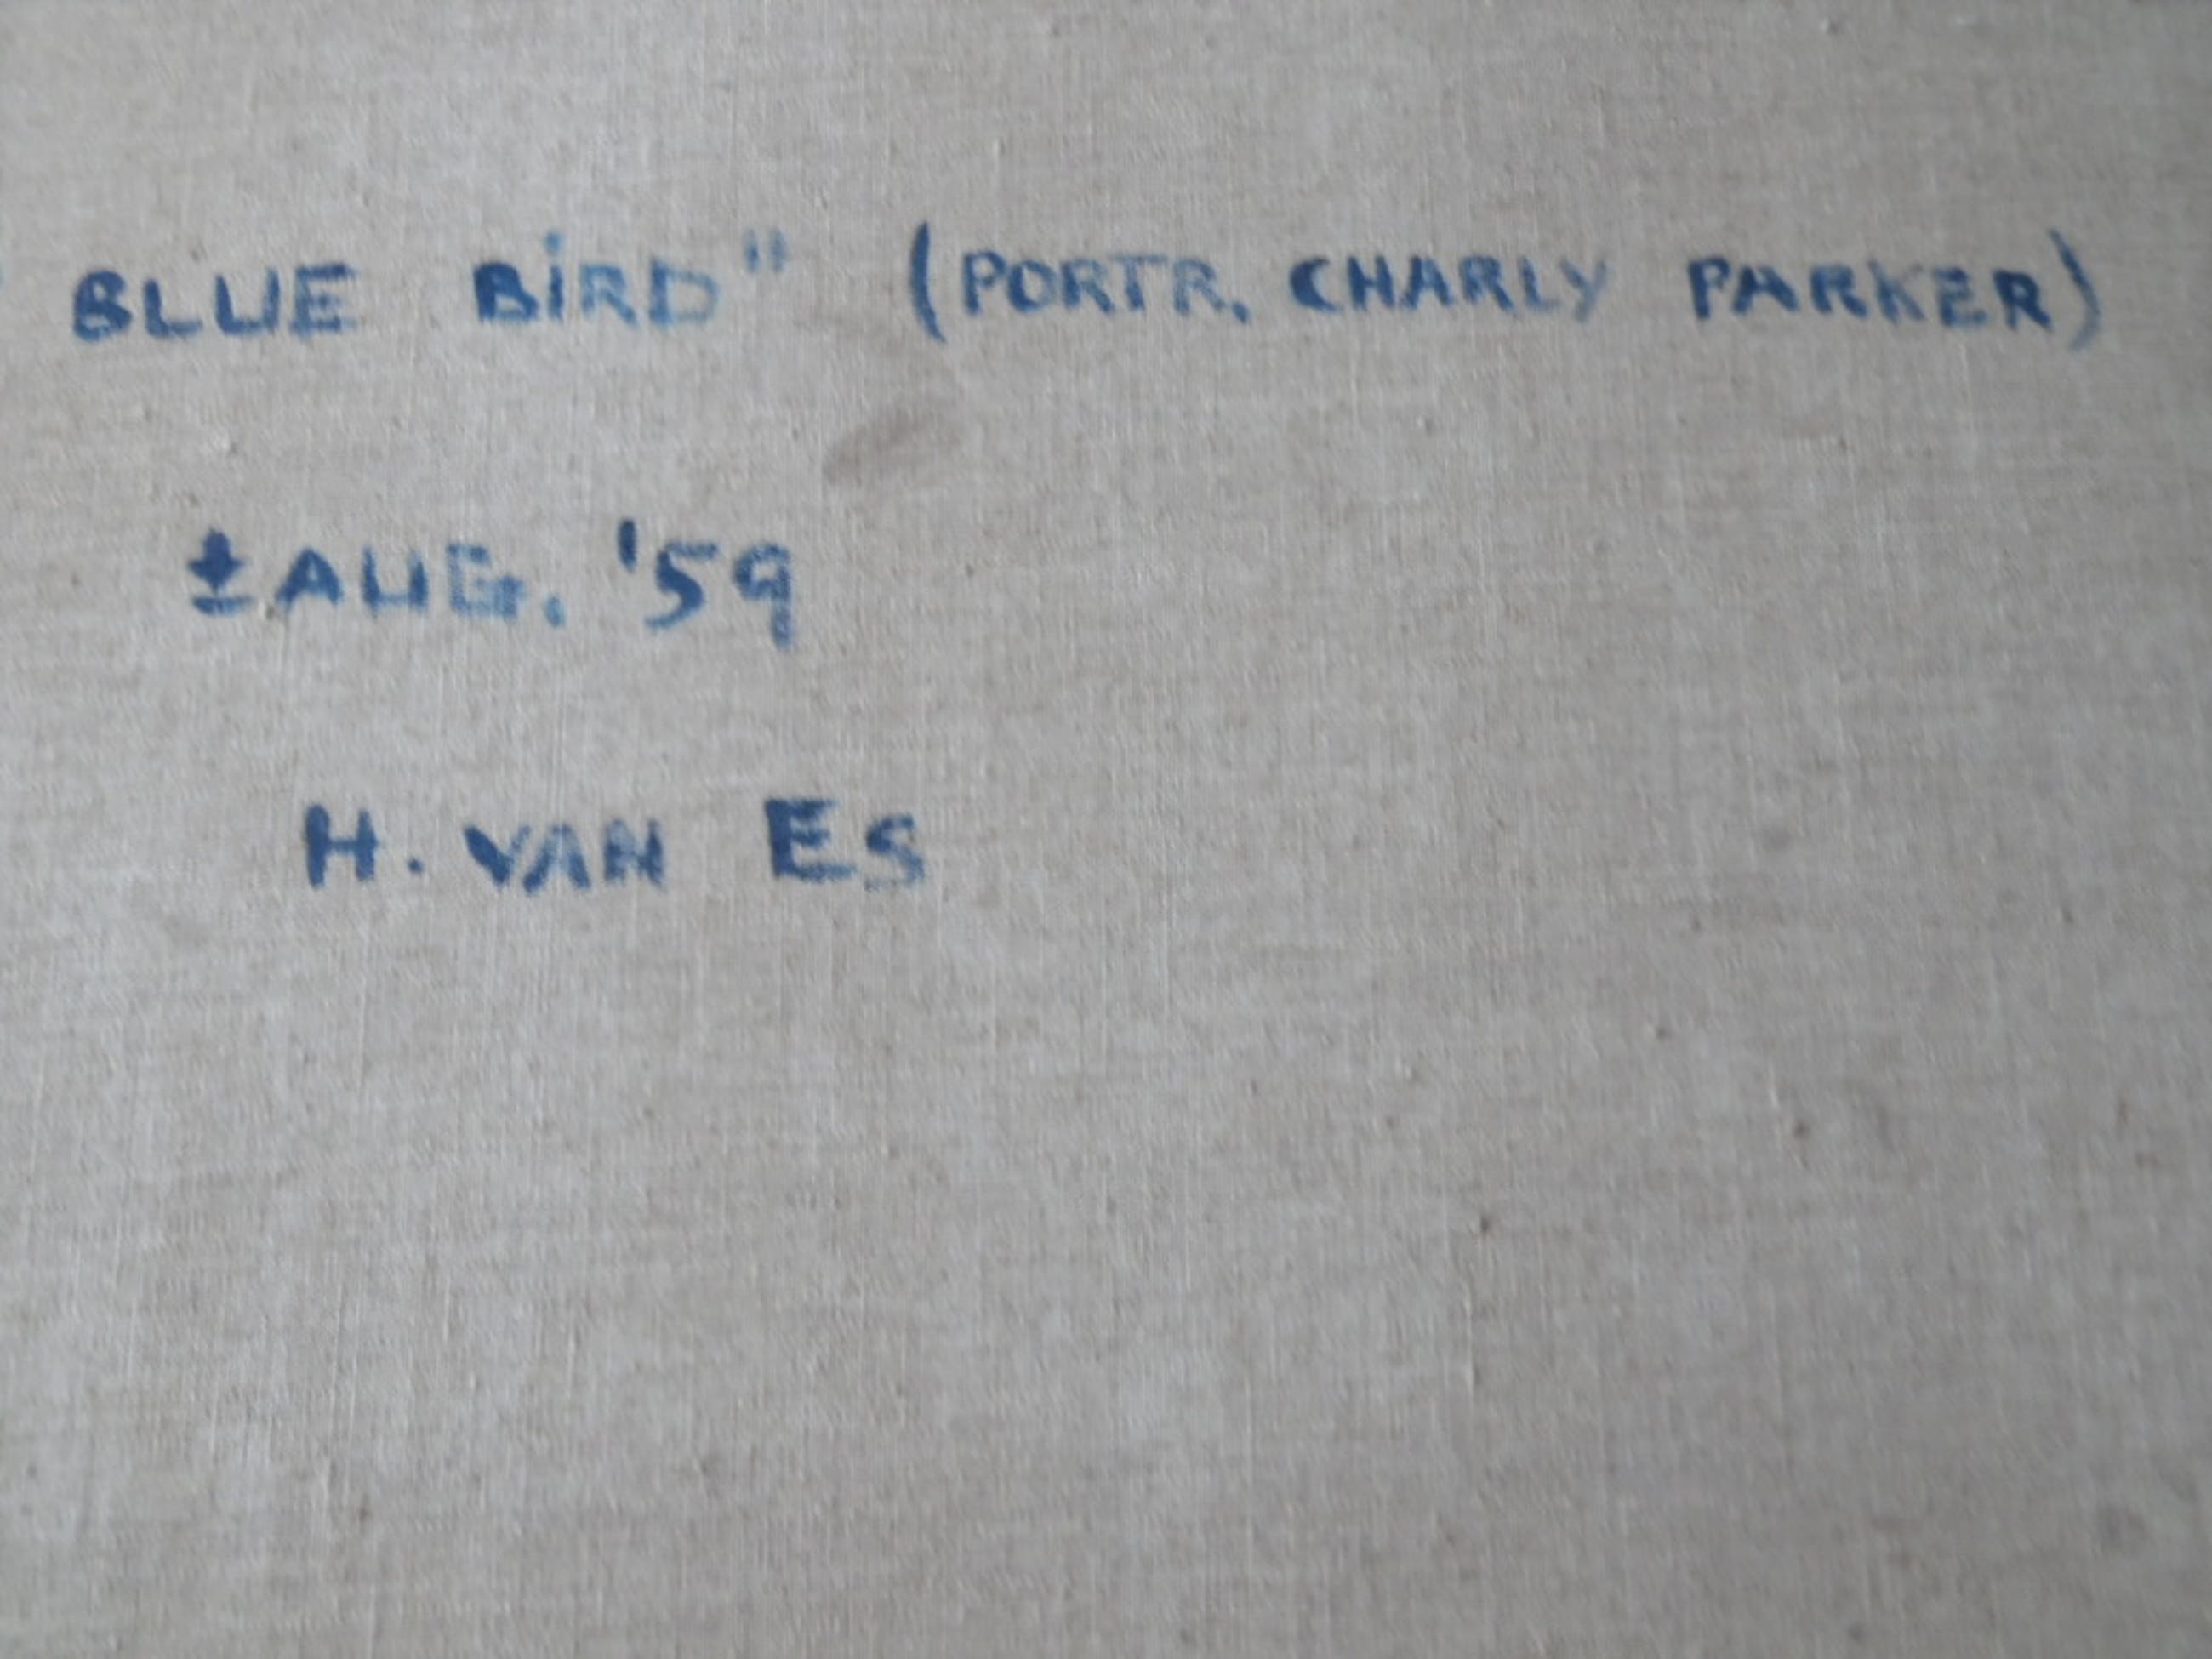 " BLUE BiRD" (PORTR. CHARLY PARKER)
± AUG. '59
H. VAN ES